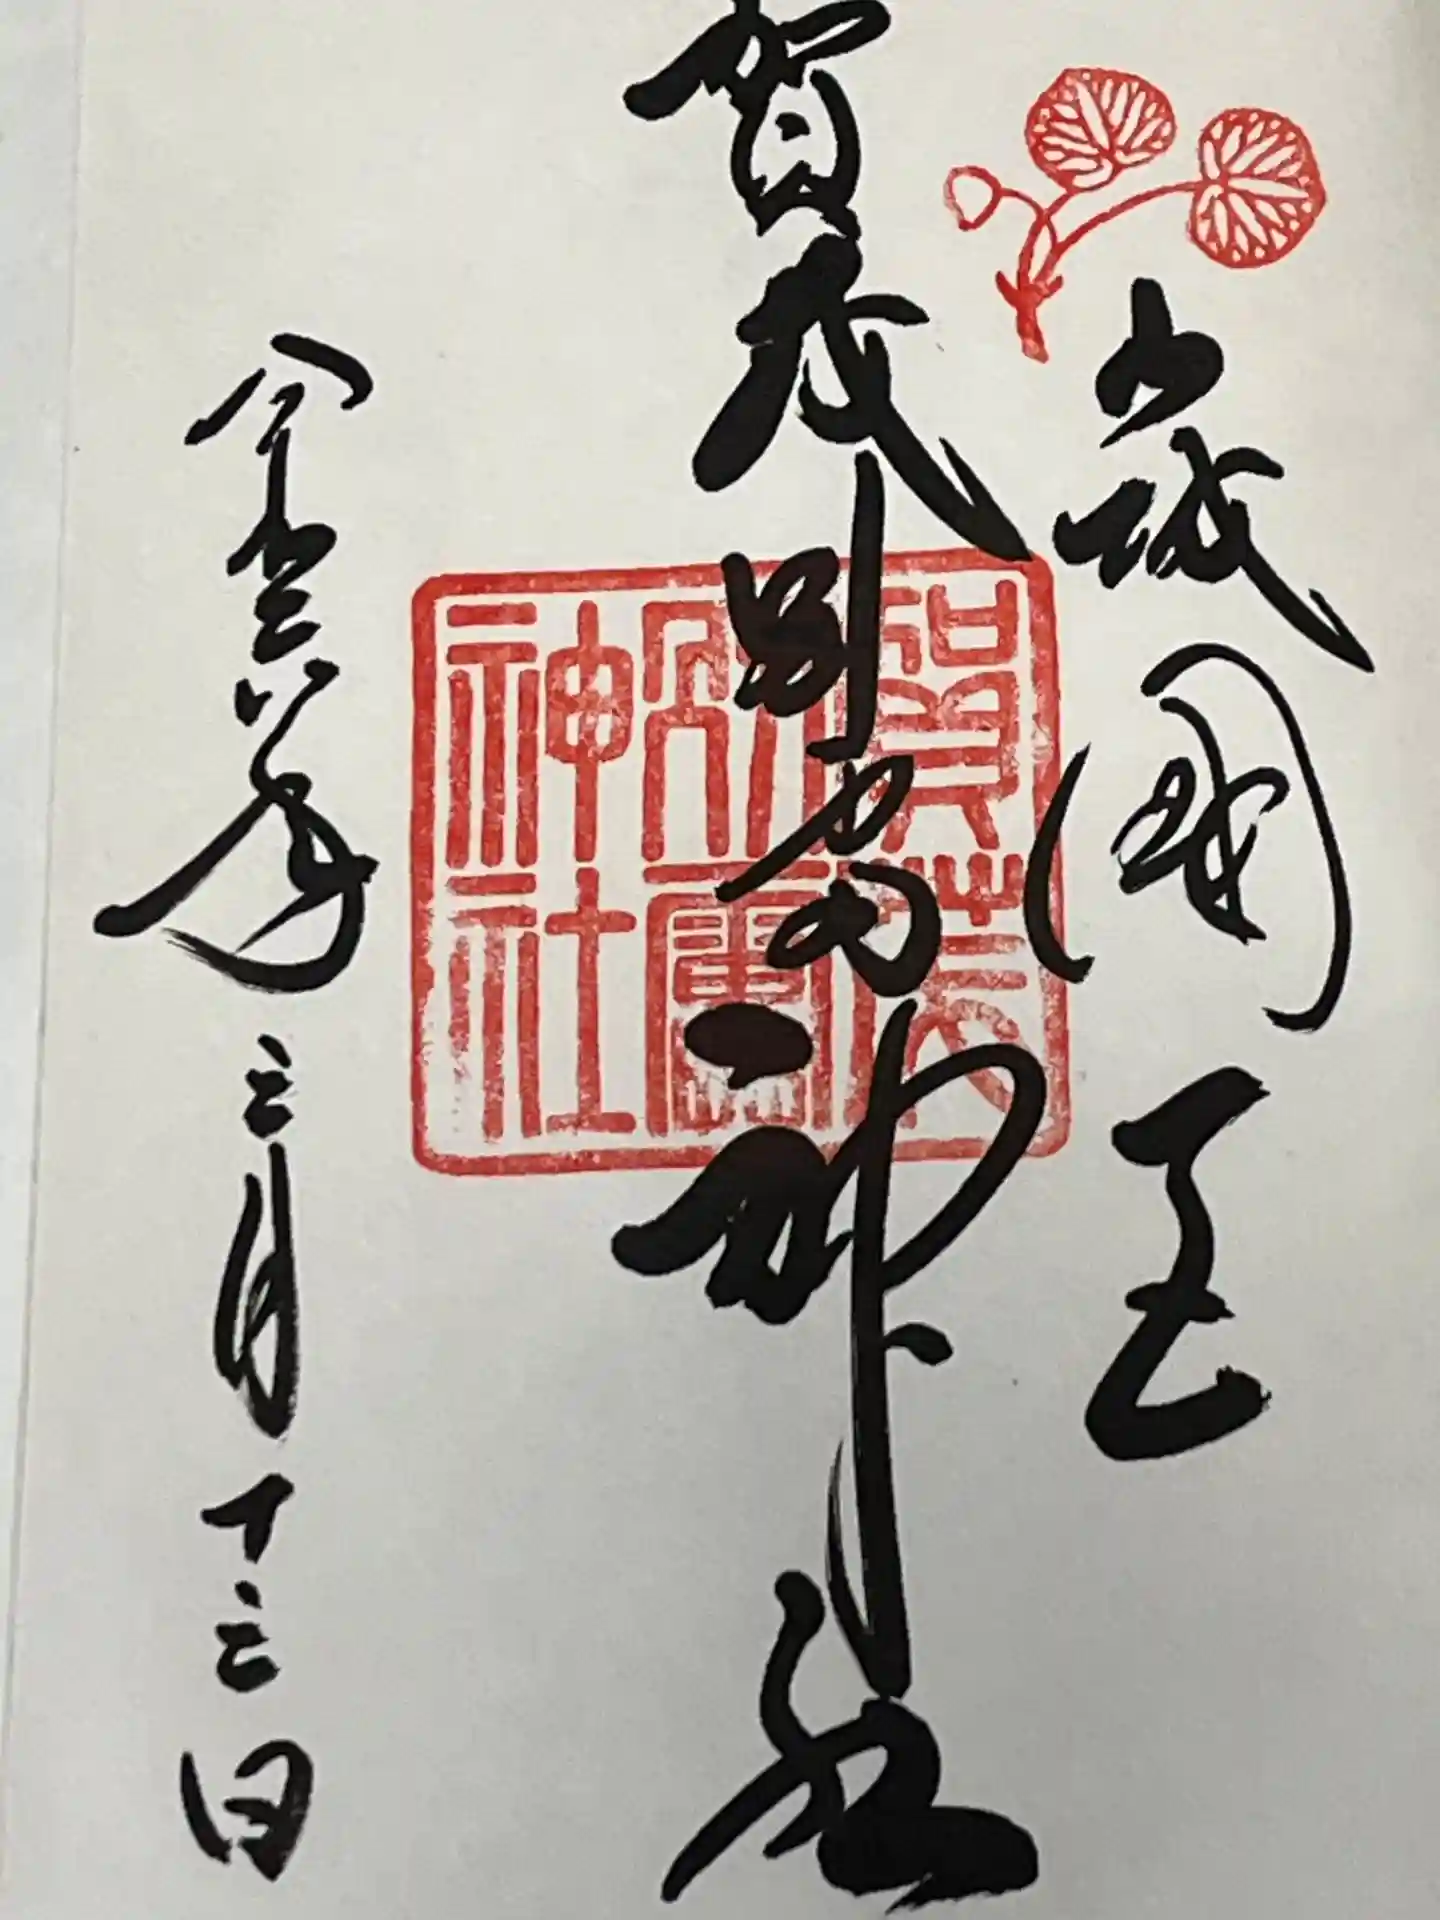 山城國一宮
賀茂別雷神社
賀茂別雷神社
令和六年三月十三日